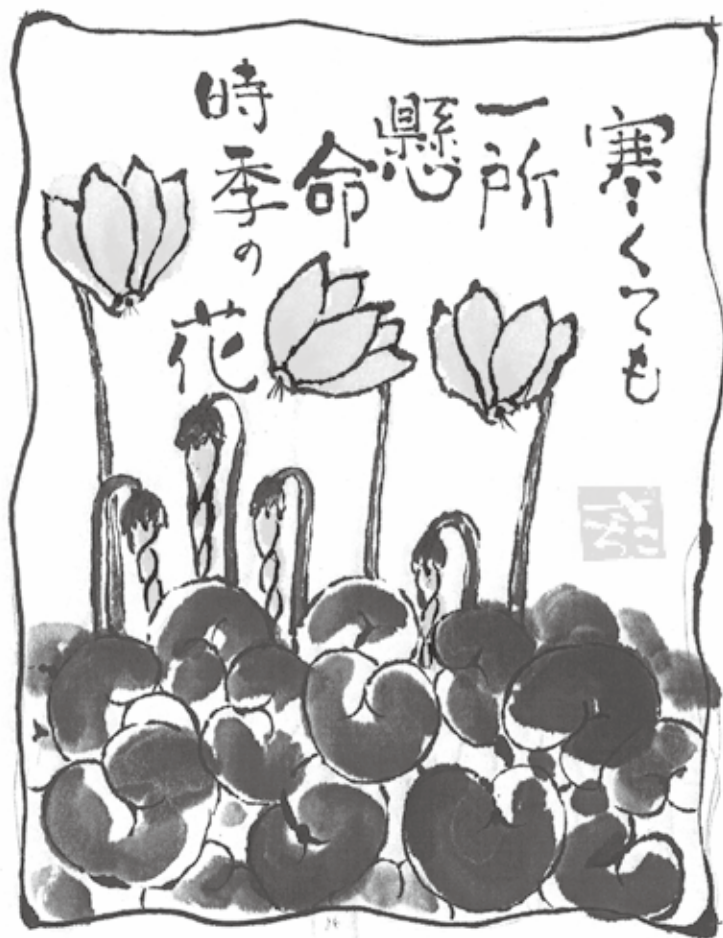 寒くても
一所
懸
命
時季の
花